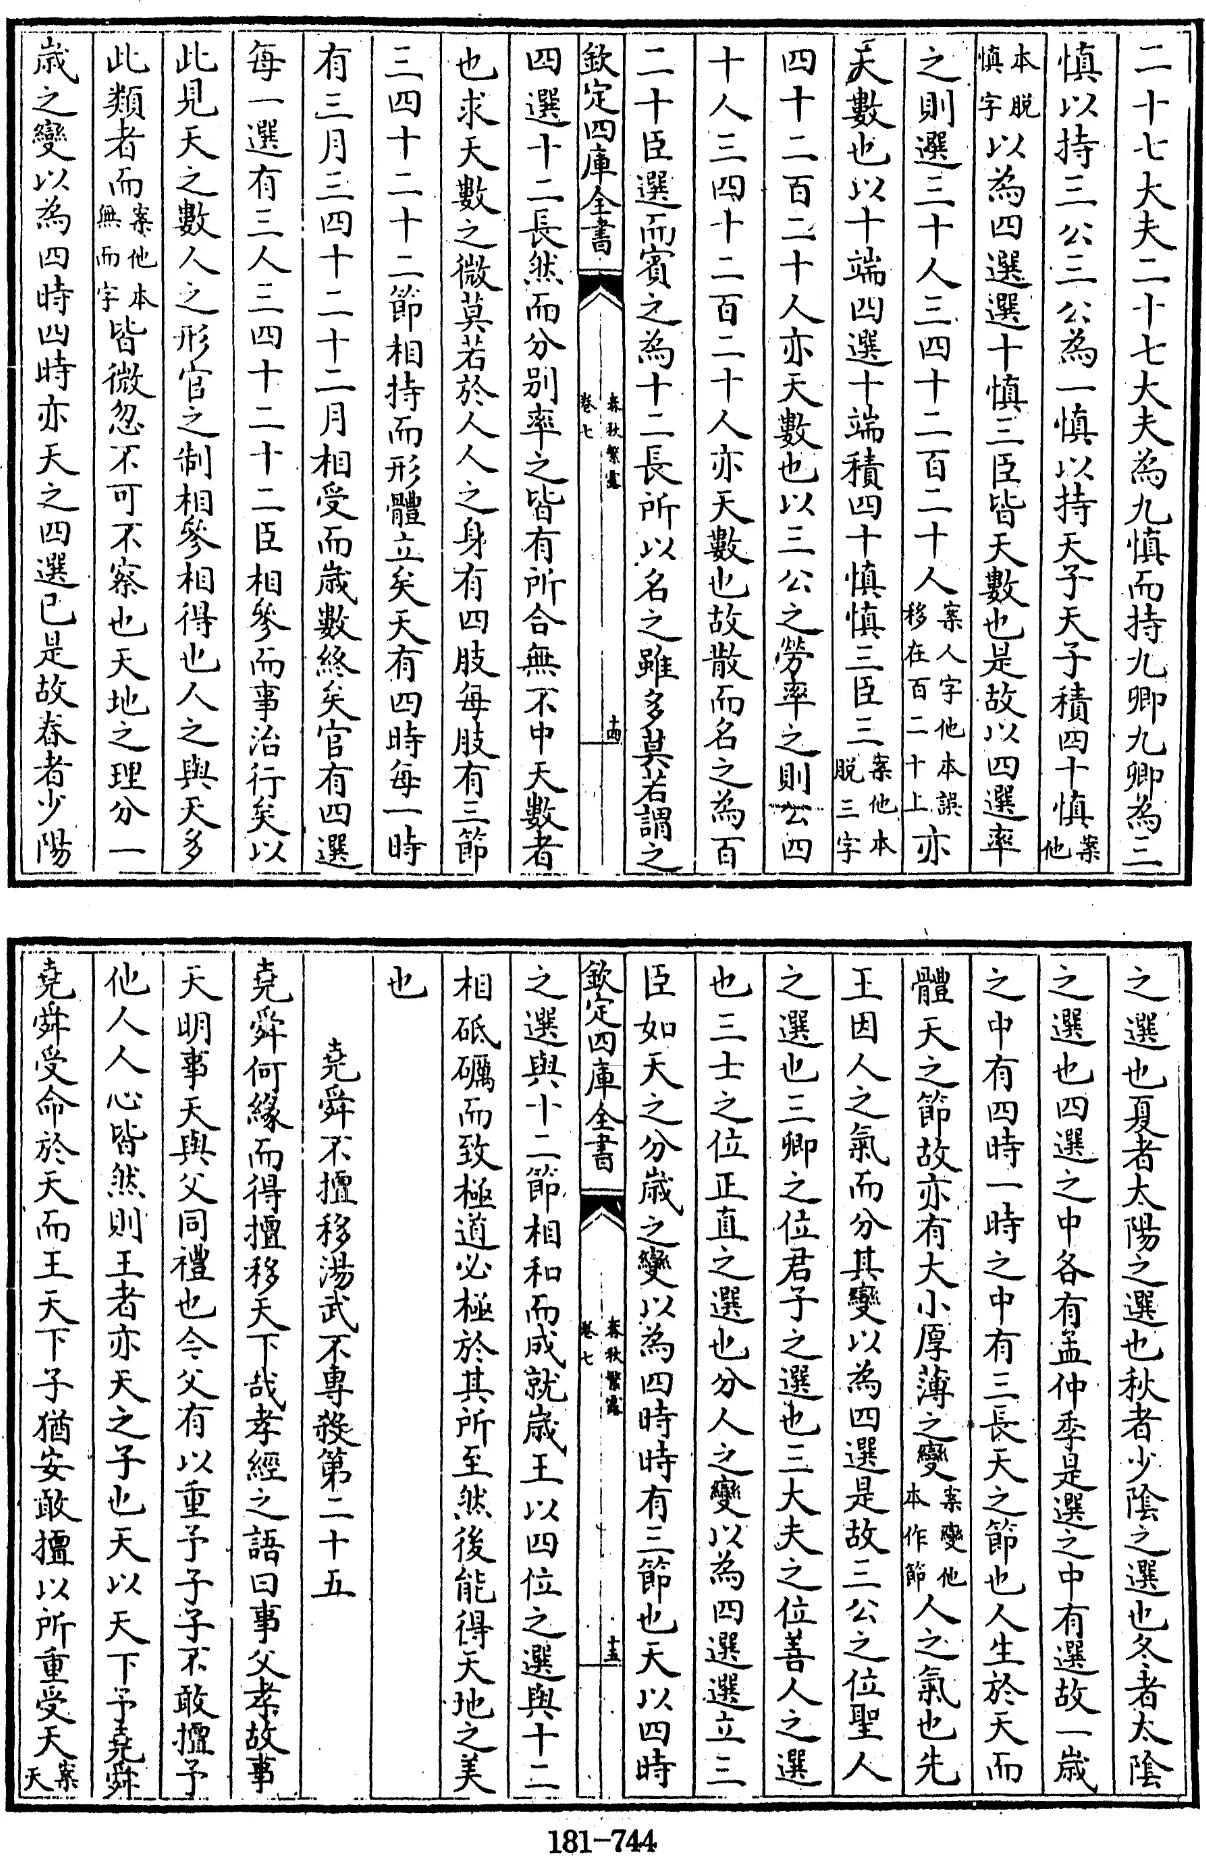 二十七大夫二十七大夫為九慎而持九卿九卿為三
慎以持三公三公為一慎以持天子天子積四十慎案他
本脱慎字以為四選選十慎三臣皆天數也是故以四選率
之則選三十人三四十二百二十人案人字他本誤移在百二十上亦
天數也以十端四選十端積四十慎慎三臣三案他本脱三字
四十二百二十人亦天數也以三公之勞率之則公四
十人三四十二百二十人亦天數也故散而名之為百
二十臣選而賓之為十二長所以名之雖多莫若謂之
欽定四庫全書
春秋繁露
卷七
十四
四選十二長然而分别率之皆有所合無不中天數者
也求天數之微莫若於人人之身有四肢每肢有三節
三四十二十二節相持而形體立矣天有四時每一時
有三月三四十二十二月相受而歲數終矣官有四選
每一選有三人三四十二十二臣相參而事治行矣以
此見天之數人之形官之制相參相得也人之與天多
此類者而案他本無而字皆微忽不可不察也天地之理分一
歲之變以為四時四時亦天之四選已是故春者少陽
之選也夏者太陽之選也秋者少陰之選也冬者太陰
之選也四選之中各有孟仲季是選之中有選故一歲
之中有四時一時之中有三長天之節也人生於天而
體天之節故亦有大小厚薄之變案變他本作節人之氣也先
王因人之氣而分其變以為四選是故三公之位聖人
之選也三卿之位君子之選也三大夫之位善人之選
也三士之位正直之選也分人之變以為四選選立三
臣如天之分歲之變以為四時時有三節也天以四時
欽定四庫全書
春秋繁露
卷七
十五
之選與十二節相和而成就歲王以四位之選與十二
相砥礪而致極道必極於其所至然後能得天地之美
也
堯舜不擅移湯武不專殺第二十五
堯舜何緣而得擅移天下哉孝經之語曰事父孝故事
天明事天與父同禮也今父有以重予子子不敢擅予
他人人心皆然則王者亦天之子也天以天下予堯舜
堯舜受命於天而王天下子猶安敢擅以所重受天案天
181-744